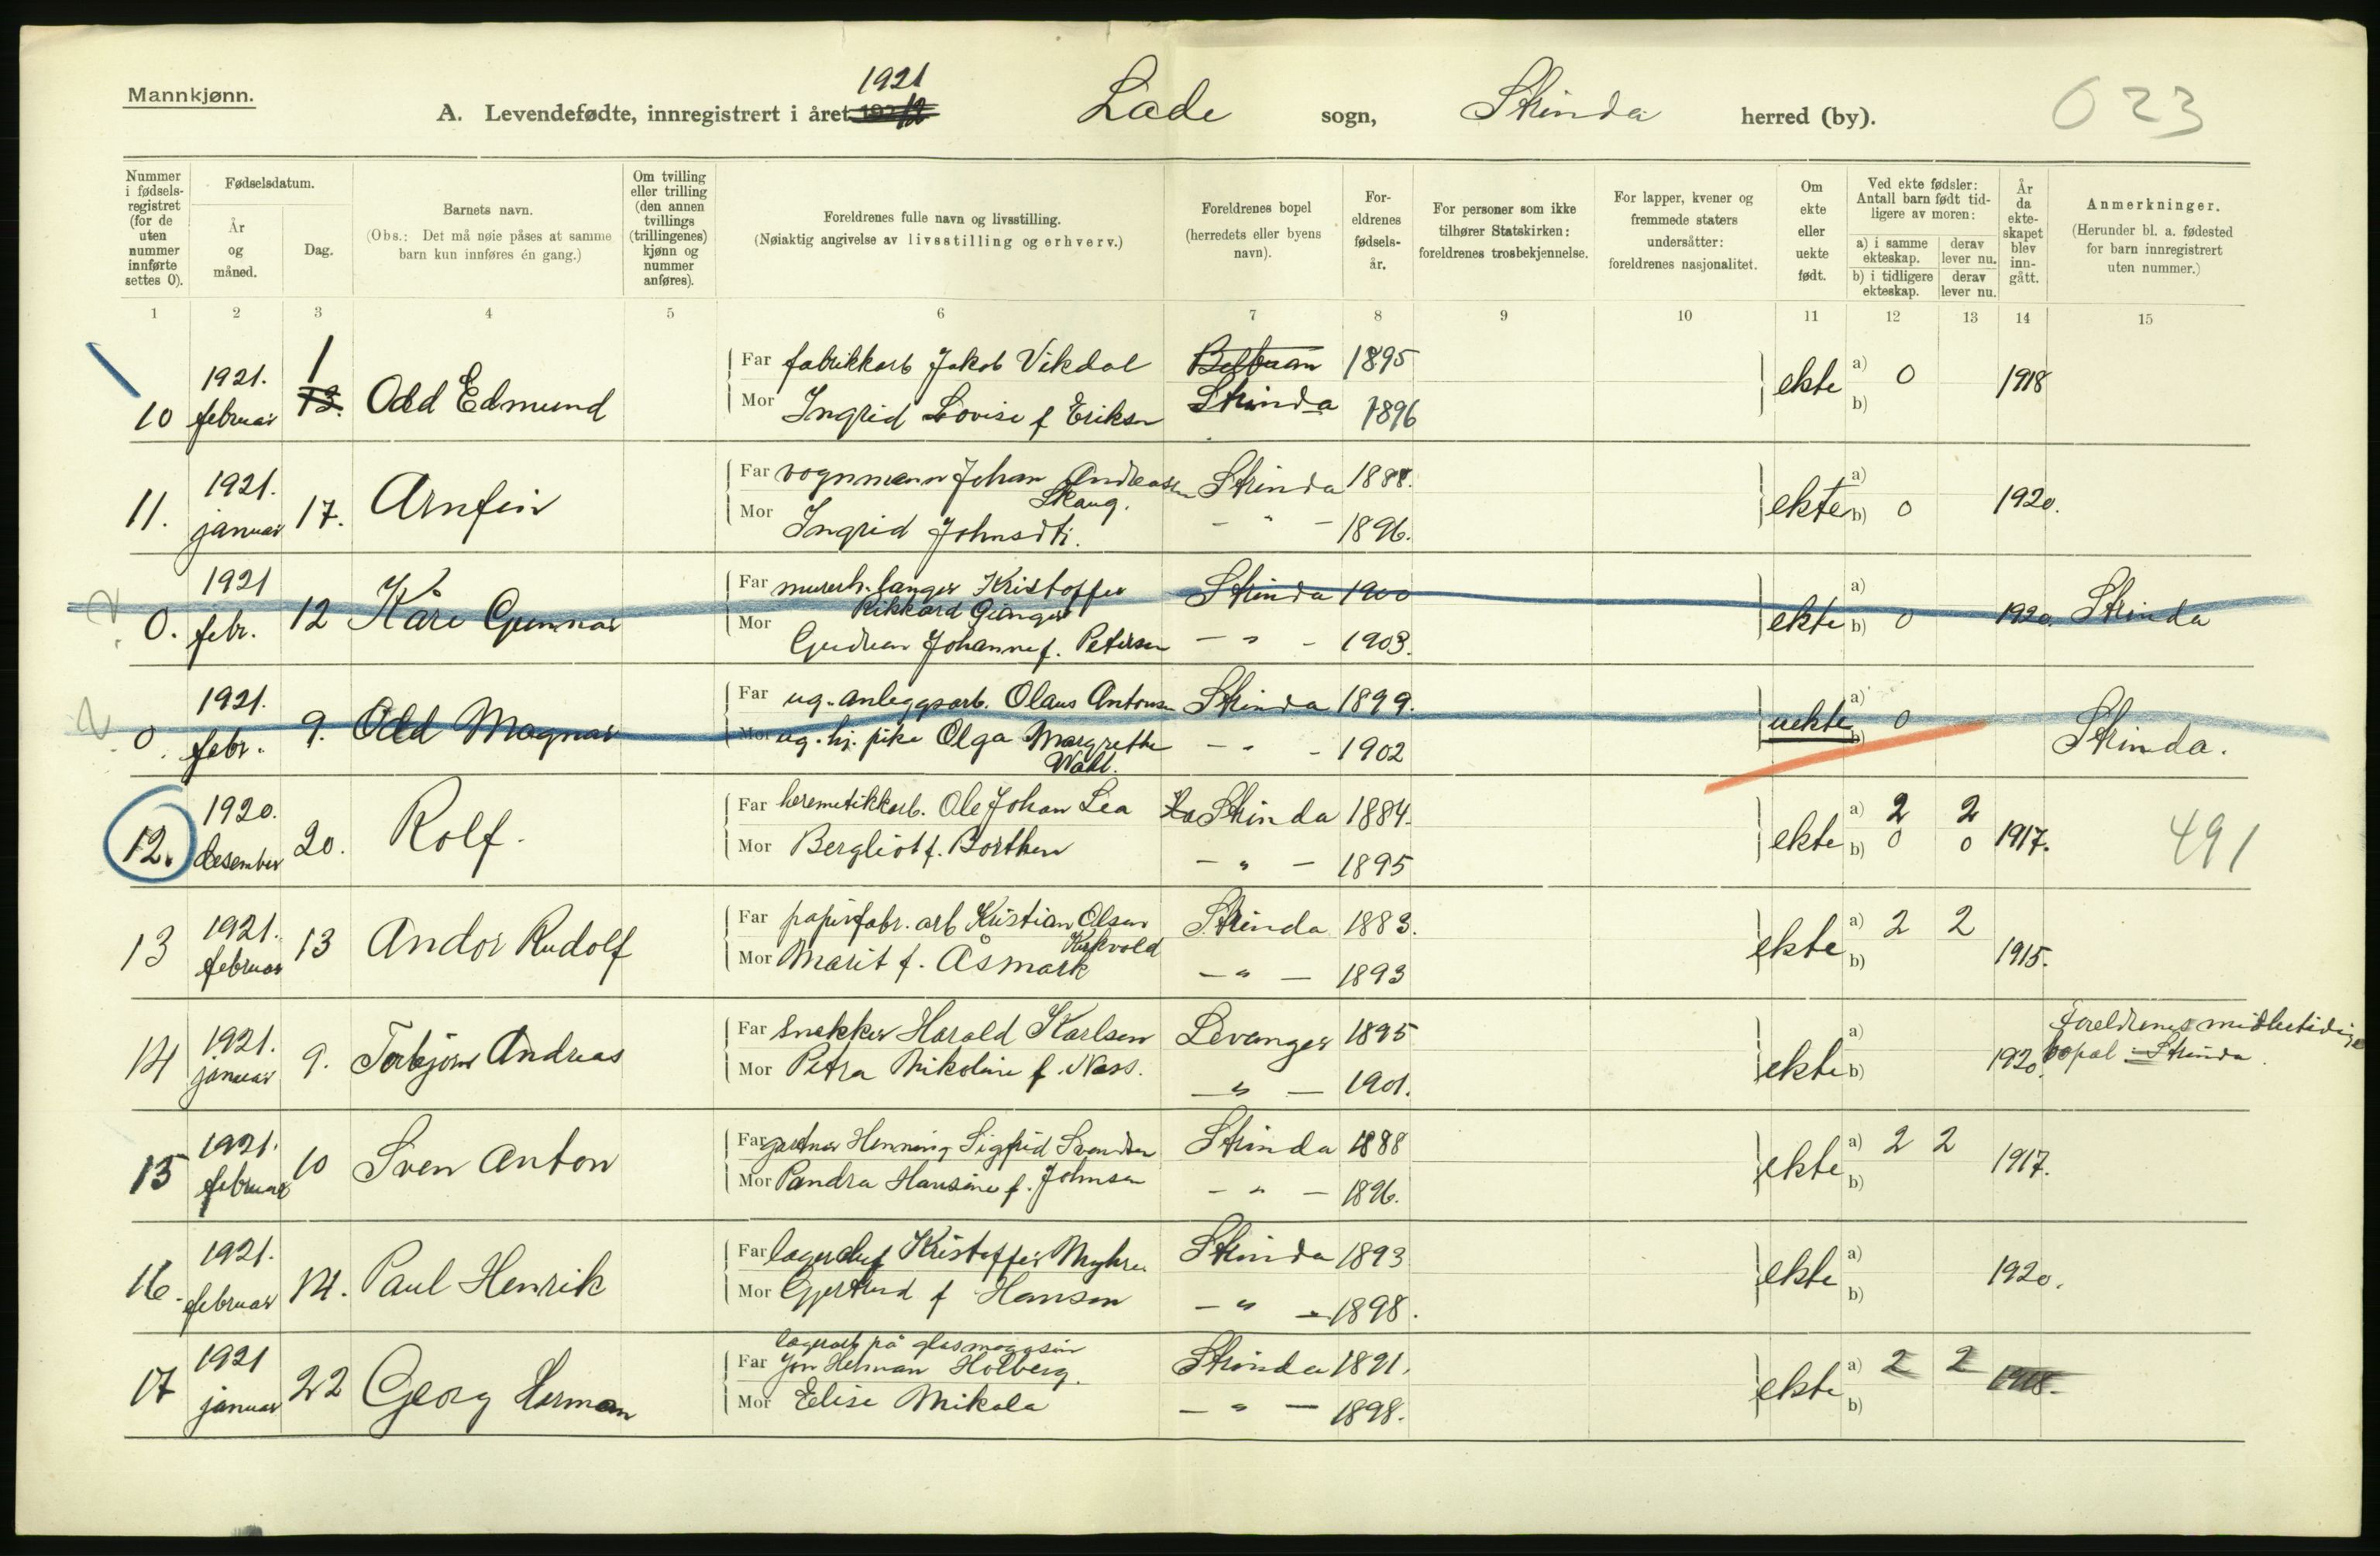 Mannkjønn.
1921
A. Levendefødte, innregistrert i året Lade sogn, Strinda herred (by). 023
Nummer i fødsels-registret (for de uten nummer innførte settes 0).
Fødselsdatum.
År og måned.
Dag.
Barnets navn.
(Obs.: Det må nøie påses at samme barn kun innføres én gang.)
Om tvilling eller trilling (den annen tvillings (trillingenes) kjønn og nummer anføres).
Foreldrenes fulle navn og livsstilling.
(Nøiaktig angivelse av livsstilling og erhverv.)
Foreldrenes bopel (herredets eller byens navn).
For-eldrenes fødsels-år.
For personer som ikke tilhører Statskirken: foreldrenes trosbekjennelse.
For lapper, kvener og fremmede staters undersåtter: foreldrenes nasjonalitet.
Om ekte eller uekte født.
Ved ekte fødsler: Antall barn født tid-ligere av moren:
a) i samme ekteskap.
derav lever nu.
b) i tidligere ekteskap.
derav lever nu.
År da ekte-skapet blev inn-gått.
Anmerkninger.
(Herunder bl. a. fødested for barn innregistrert uten nummer.)
1 2 3 4 5 6 7 8 9 10 11 12 13 14 15
10 1921. februar 1 13. Odd Edmund
Far fabrikkarb Jakob Vikdal 1895
Mor Ingrid Lovise f Eriksen Strinda 1896
ekte a) 0 b) 1918
11. 1921. januar 17. Arnfin
Far vognmann Johan Andreassen Skaug. Strinda 1888.
Mor Ingrid Johnsdtr. - " - 1896.
ekte a) b) 0 1920.
0. 1921 febr. 12 Kåre Gunnar
Far murerh.langer Kristoffer Rikkard Strinda 1900
Mor Gudrun Johanne f. Petersen - " - 1903.
ekte a) b) 0 1920. Strinda
0. 1921. febr. 9. Odd Magnar
Far ug. anleggsarb. Olaus Antonsen Strinda 1899.
Mor ug. hj. pike Olga Margrethe Wahl. - " - 1902
uekte a) b) 0 Strinda.
12. 1920. desember 20. Rolf.
Far hermetikkarb. Ole Johan Lea Strinda 1884.
Mor Bergliot f. Borthen - " - 1895
ekte a) 2 2 b) 0 0 1917. 491
13 1921. februar 13 Andor Rudolf
Far papirfabr. arb Kristian Olsen Kirkvold Strinda 1883.
Mor Marit f. Åsmark - " - 1893
ekte a) 2 2 b) 1915.
14 1921. januar 9. Torbjørn Andreas
Far Snekker Harald Karlsen Levanger 1895
Mor Petra Nikoline f. Næss. - " - 1901.
ekte a) b) 1920. Foreldrenes midlertidige bopæl = Strinda.
15 1921. februar 10 Sven Anton
Far gartner Henning Sigfrid Svendsen Strinda 1888
Mor Pandra Hansine f. Johnsen - " - 1896.
ekte a) 2 2 b) 1917.
16. 1921. februar 14. Paul Henrik
Far lagerchef Kristoffer Myhre Strinda 1893
Mor Gjertrud f Hansen - " - 1898.
ekte a) b) 1920.
17 1921 januar 22 Georg Herman
lagerarb på glasmagasin
Far Jon Herman Holberg. Strinda 1891.
Mor Elise Mikala - " - 1898.
ekte a) 2 2 b) 1918.